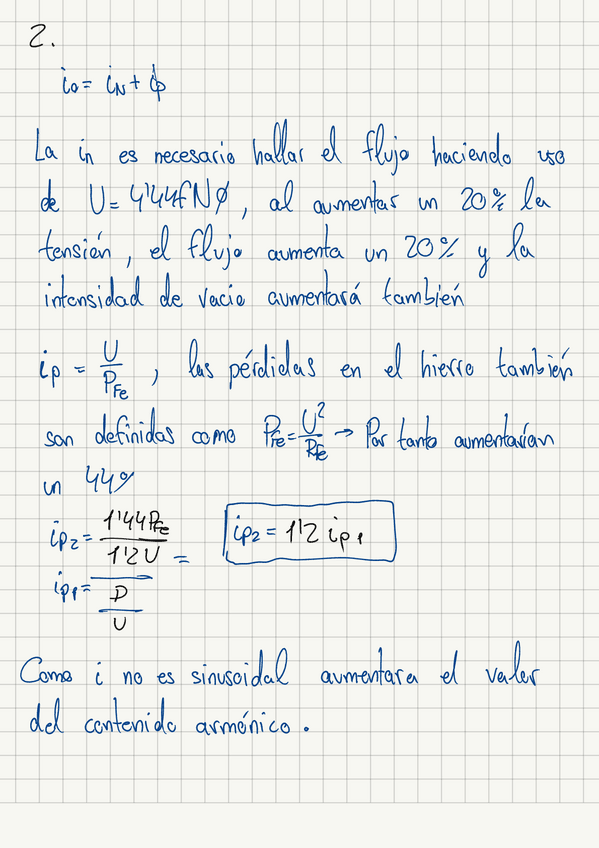 2.
i₀ = iₙ + iφ
La in es necesario hallar el flujo haciendo uso
de U = 4'44fNØ, al aumentar un 20% la
tensión, el flujo aumenta un 20% y la
intensidad de vacio aumentará también
ip = U/P_Fe, las pérdidas en el hierro también
son definidas como P_Fe = U²/R_Fe → Por tanto aumentarían
un 44%
ip₂ = 1'44P_Fe / 1'2U =
ip₁ = D / U
ip₂ = 1'2 ip₁
Como i no es sinusoidal aumentara el valor
del contenido armónico.